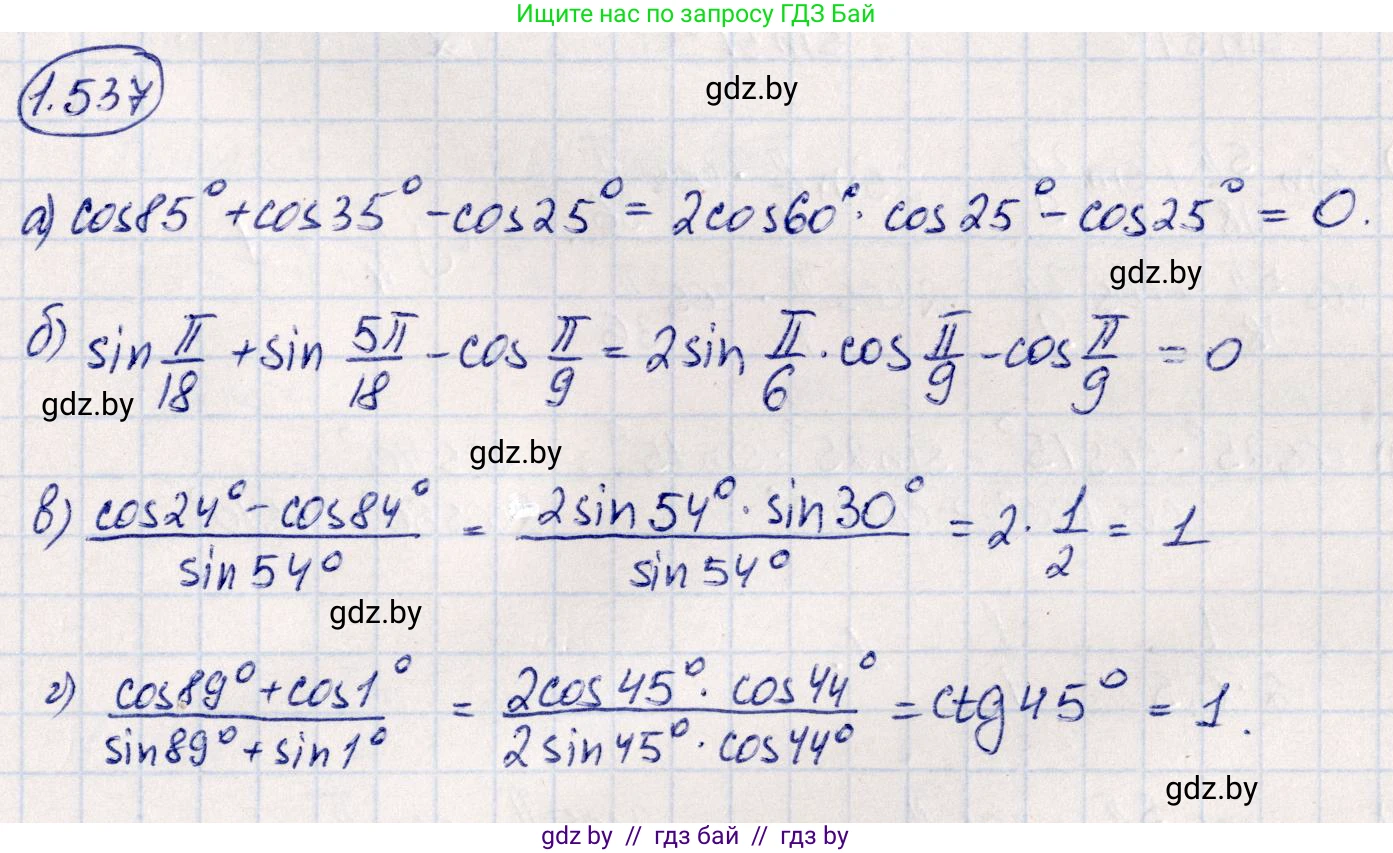 Ищите нас по запросу ГДЗ Бай
1.537
gdz.by
а) cos85° + cos35° - cos25° = 2cos60° · cos25° - cos25° = 0.
gdz.by
б) sin π/18 + sin 5π/18 - cos π/9 = 2sin π/6 · cos π/9 - cos π/9 = 0
gdz.by
gdz.by
в) (cos24° - cos84°)/(sin54°) = (2sin54° · sin30°)/(sin54°) = 2 · 1/2 = 1
gdz.by
г) (cos89° + cos1°)/(sin89° + sin1°) = (2cos45° · cos44°)/(2sin45° · cos44°) = ctg45° = 1.
gdz.by
gdz by // гдз бай // гдз by